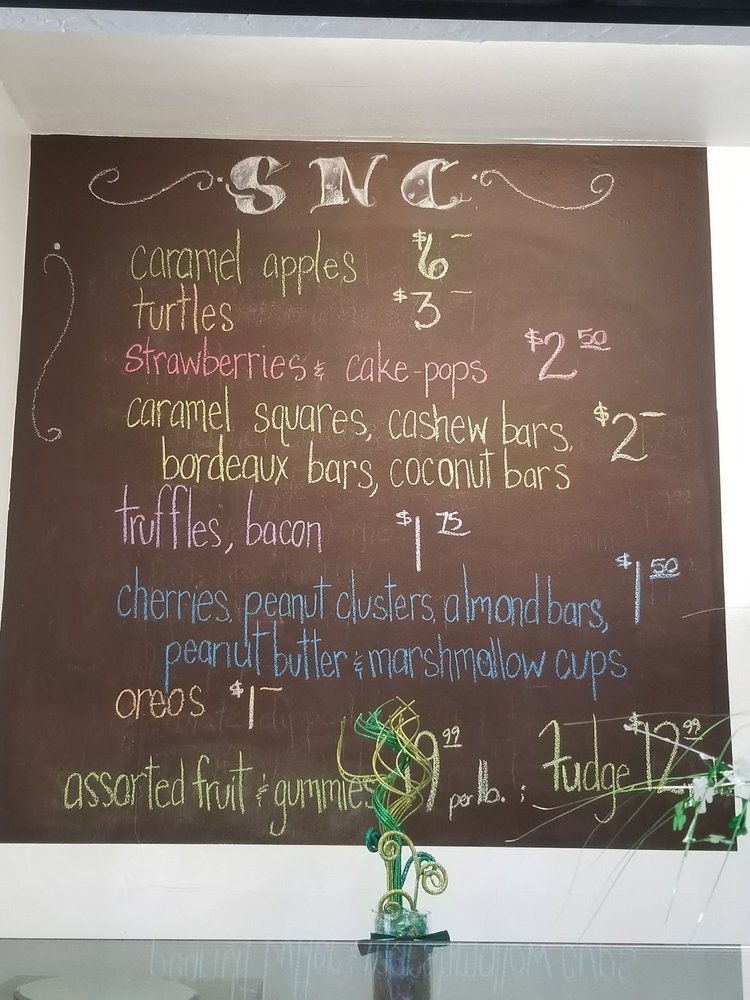 SNC
caramel apples $6
turtles $3
strawberries & cake-pops $2 50
caramel squares, cashew bars, $2
bordeaux bars, coconut bars
truffles, bacon $1 75
cherries, peanut clusters, almond bars, $1 50
peanut butter & marshmallow cups
oreos $1
assorted fruit & gummies 9 99 per lb. ; fudge $12 99